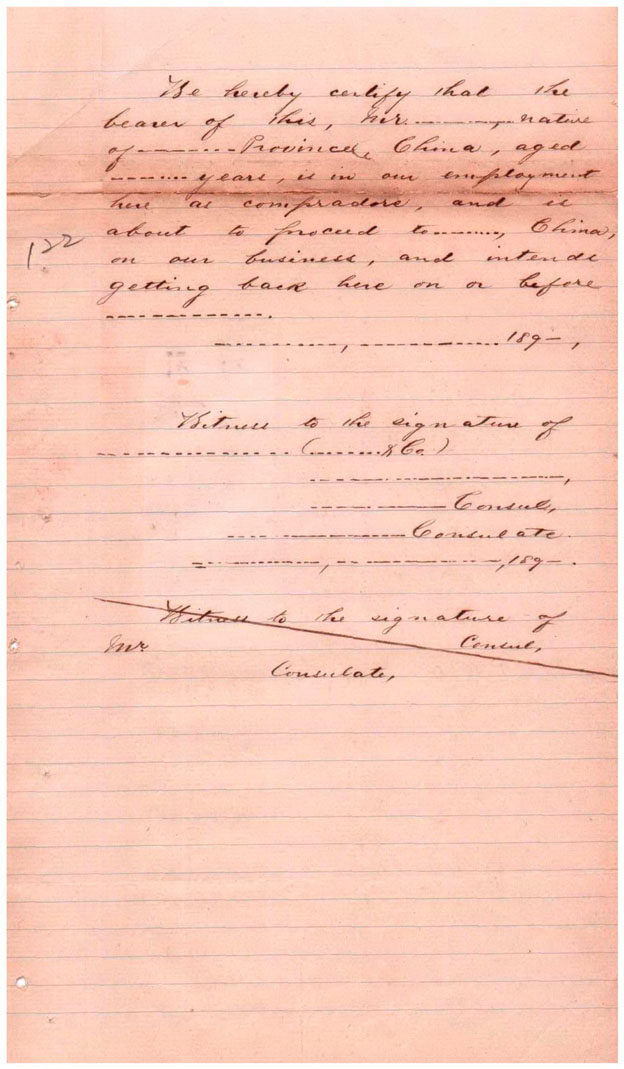 We hereby certify that the
bearer of this, Mr. ----------, native
of ---------- Province, China, aged
---------- years, is in our employment
here as compradore, and is
about to proceed to --------, China,
on our business, and intends
getting back here on or before
-------------.
----------, ------------ 189-,
Witness to the signature of
---------------- (-------- & Co.)
--------------------,
------------ Consul,
---------------- Consulate.
------------, ---------------, 189-.
Witness to the signature of
Mr. Consul,
Consulate,
122